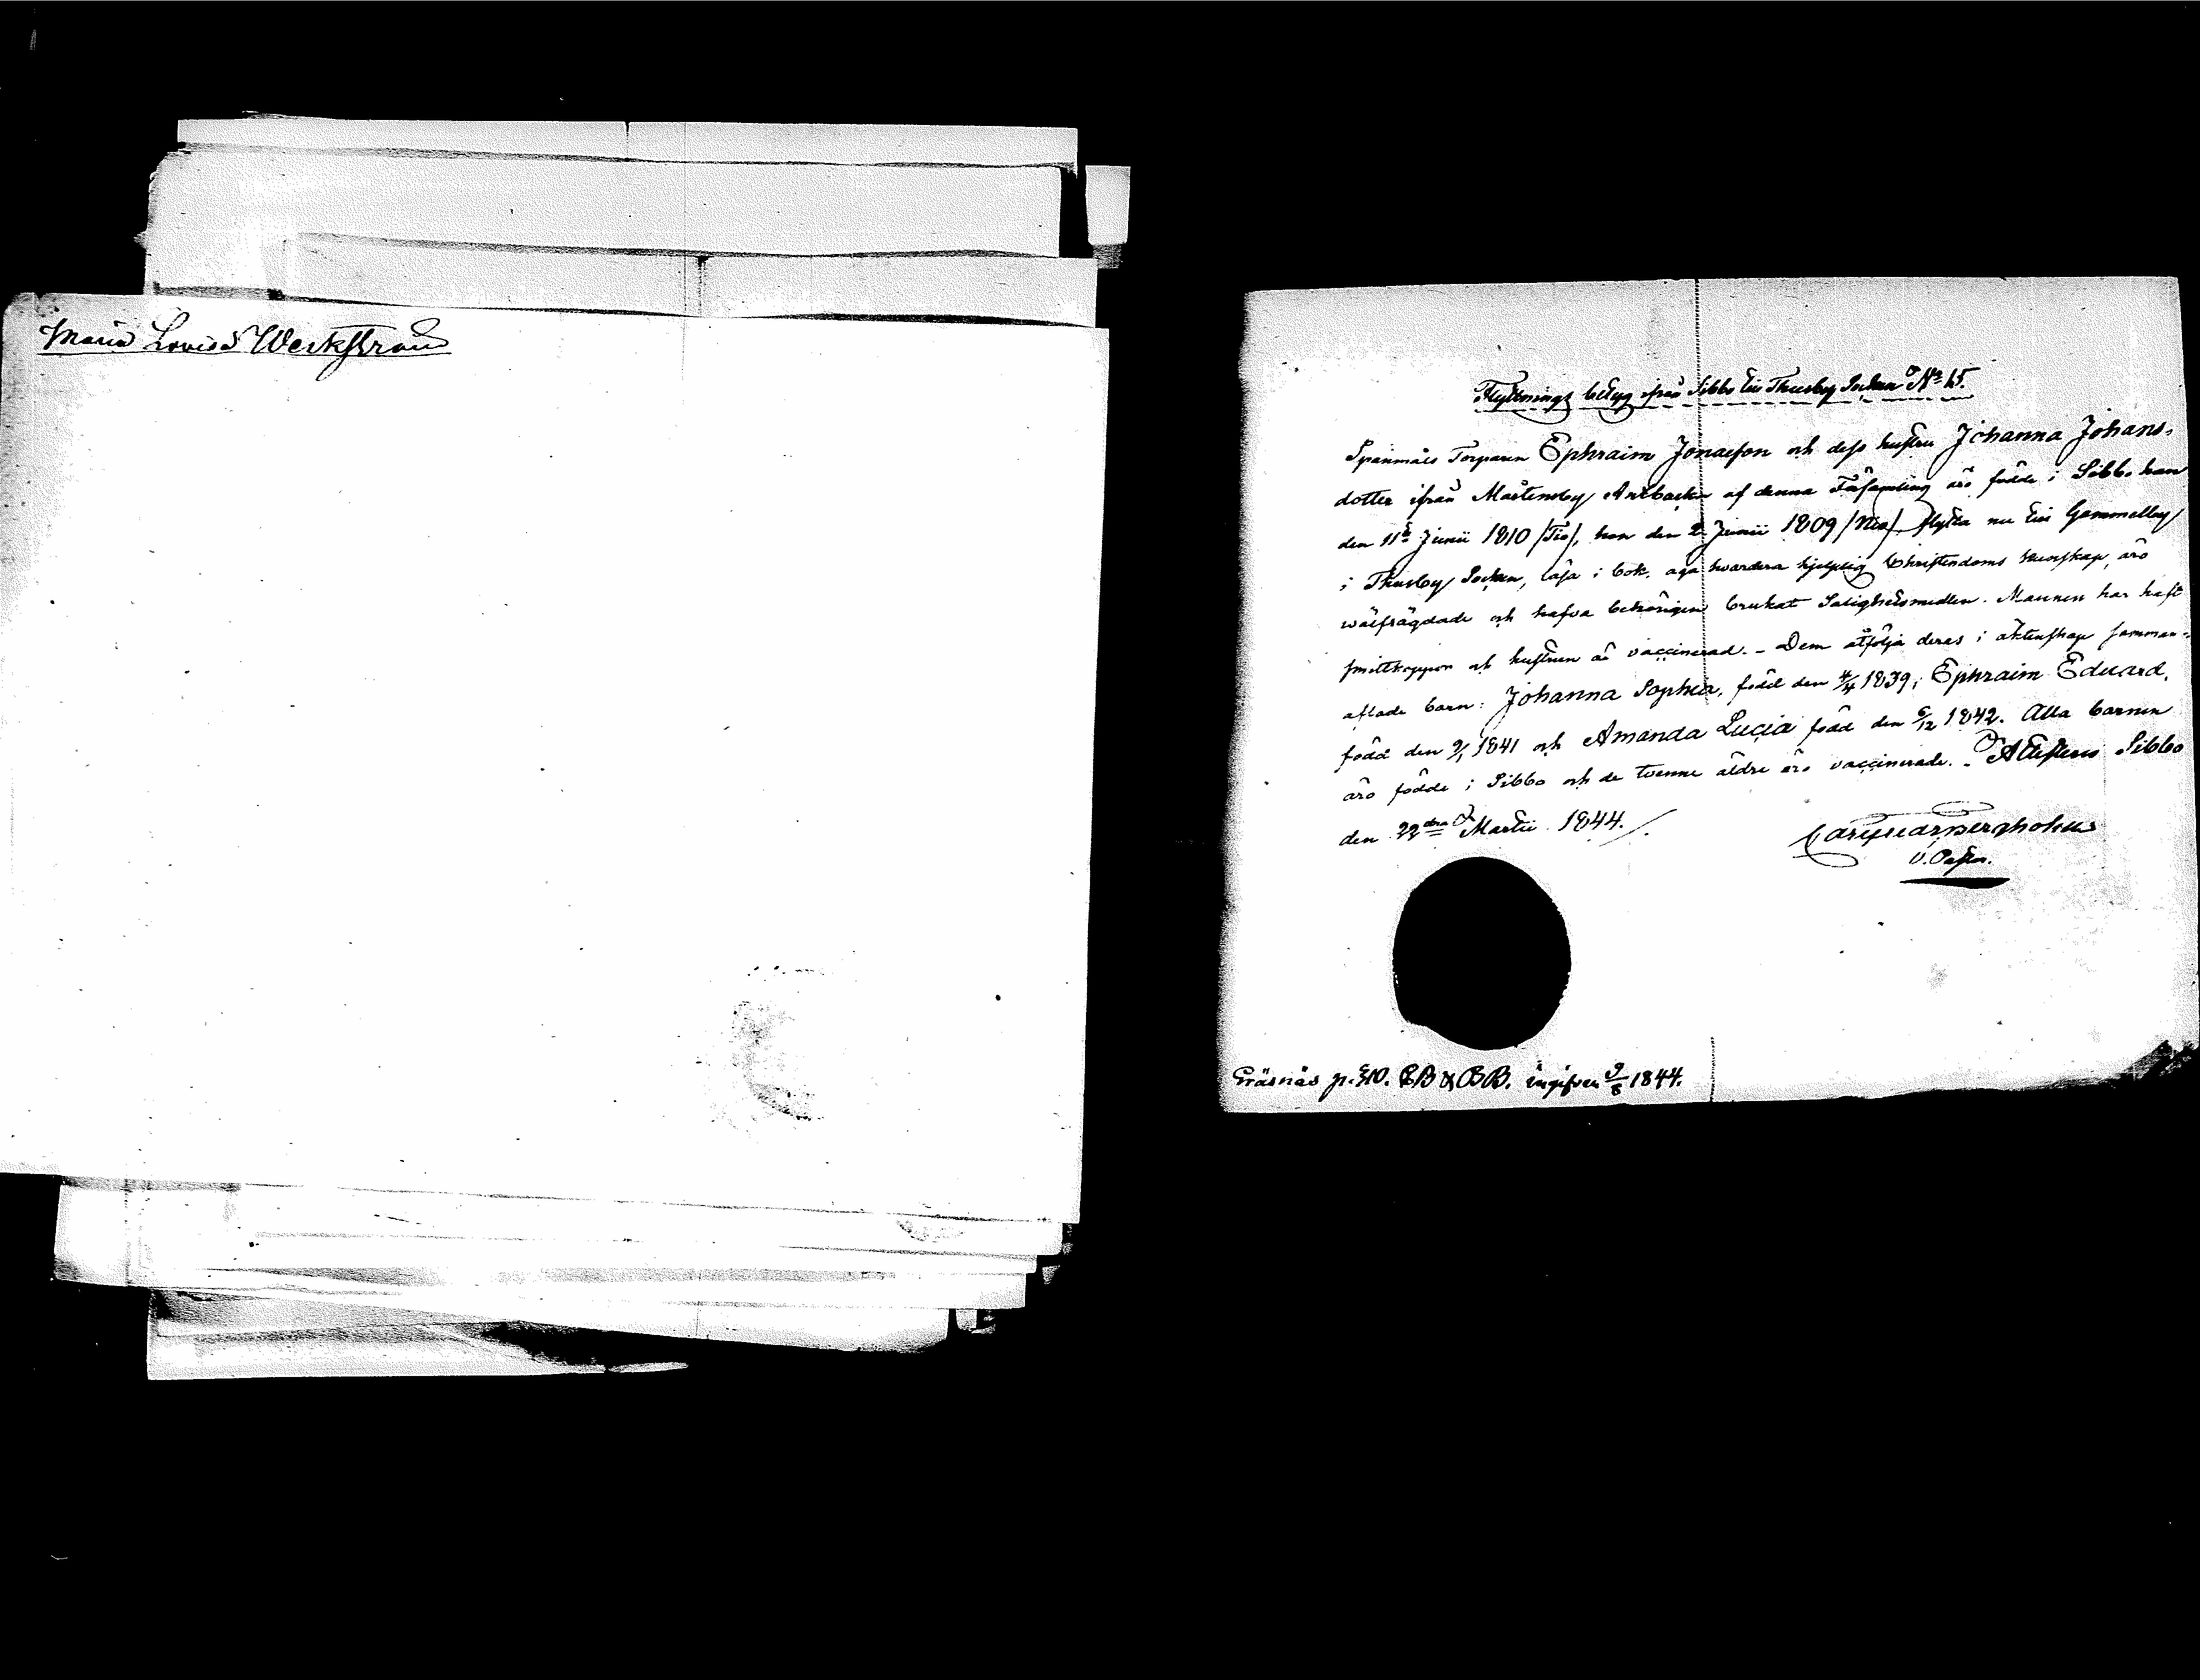 Maria Lovisa Werkstrand
Flyttnings betyg ifrån Sibbo till Thusby Socken N° 15.
Spanmåls Torparen Ephraim Jonaeson och dess hustru Johanna Johans-
dotter ifrån Mårtensby Arsbacka af denna Församling äro födde i Sibbo han
den 11te Junii 1810 /Tio/, hon den 2 Junii 1809 /Nio/ flytta nu till Gammelby
i Thusby Socken, läsa i bok, äga hvardera hjelplig Christendoms kunskap, äro
wälfrägdade och hafva behörigen brukat Salighetsmedlen. Mannen har haft
smittkoppor och hustrun är vaccinerad. - Dem åtfölja deras i äktenskap samman-
aflade barn: Johanna Sophia, född den 4/4 1839; Ephraim Eduard,
född den 9/1 1841 och Amanda Lucia född den 6/12 1842. Alla barnen
äro födde i Sibbo och de tvenne äldre äro vaccinerade. - Attesteras Sibbo
den 22dra Martii 1844.
V. Pastor.
Gräsnäs p. 310. CB & BB. ingifven 9/5 1844.